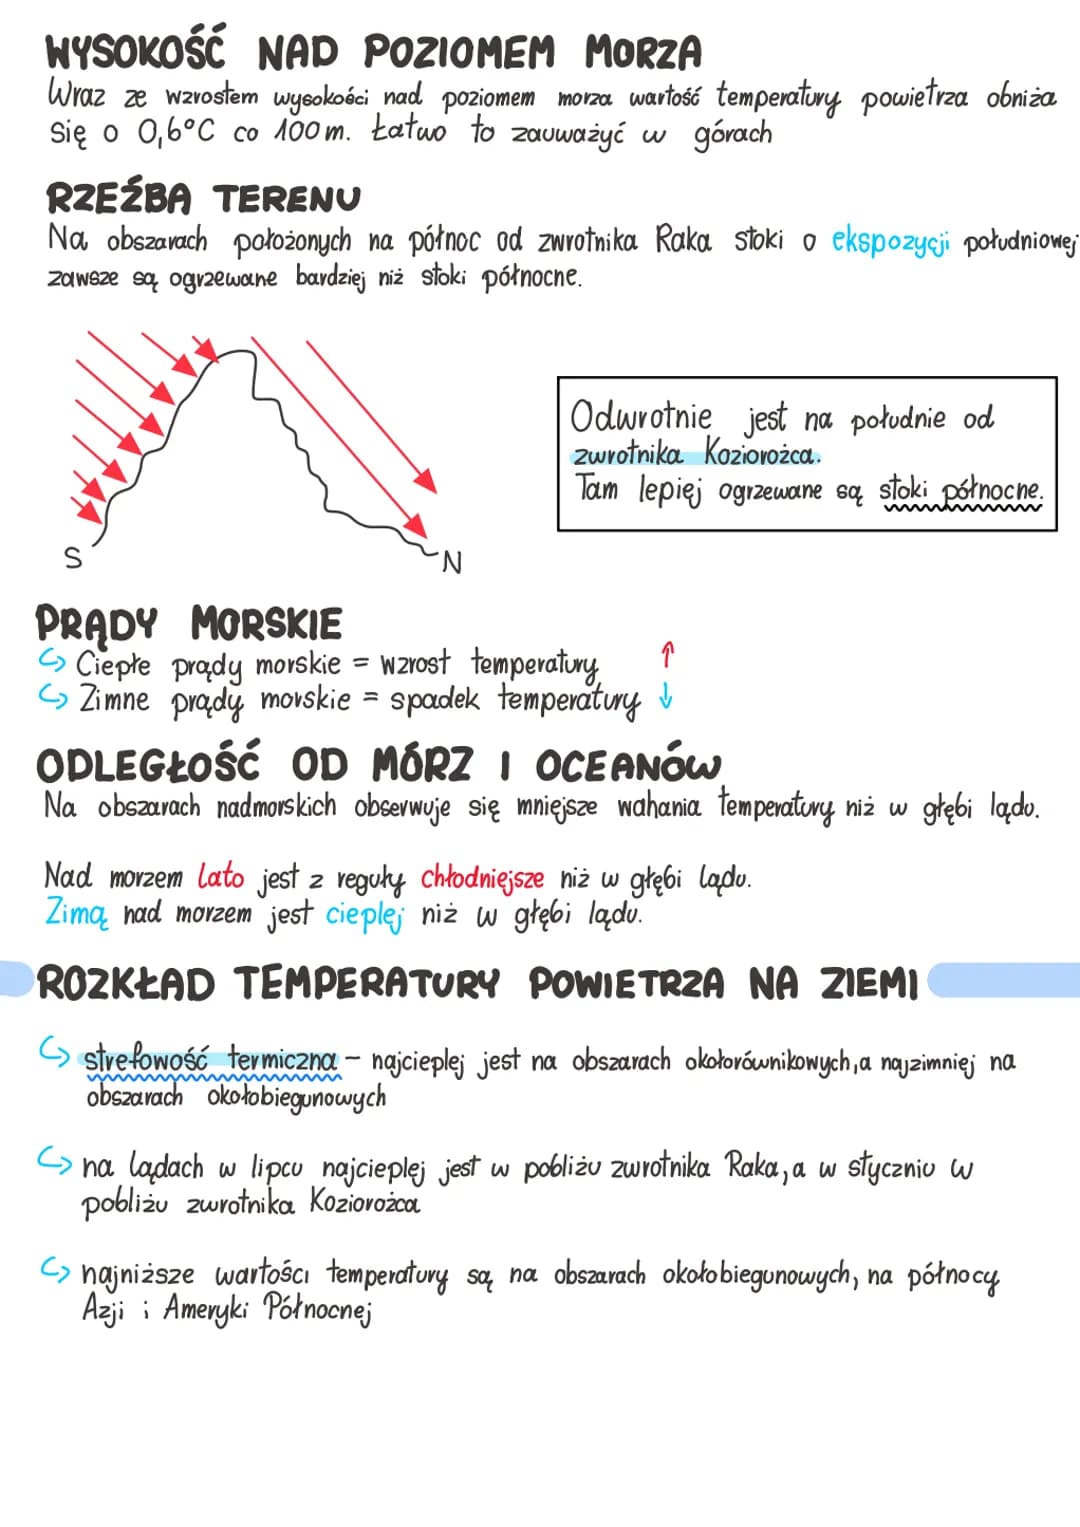 WYSOKOŚĆ NAD POZIOMEM MORZA
Wraz ze wzrostem wysokości nad poziomem morza wartość temperatury powietrza obniża
się o 0,6°C co 100m. Łatwo to zauważyć w górach
RZEŹBA TERENU
Na obszarach położonych na północ od zwrotnika Raka stoki o ekspozycji południowej
zawsze są ogrzewane bardziej niż stoki północne.
Odwrotnie jest na południe od
zwrotnika Koziorożca.
Tam lepiej ogrzewane są stoki północne.
S
N
PRĄDY MORSKIE
↪ Ciepłe prądy morskie = wzrost temperatury ↑
↪ Zimne prądy morskie = spadek temperatury ↓
ODLEGŁOŚĆ OD MÓRZ I OCEANÓW
Na obszarach nadmorskich obserwuje się mniejsze wahania temperatury niż w głębi lądu.
Nad morzem lato jest z reguły chłodniejsze niż w głębi lądu.
Zimą nad morzem jest cieplej niż w głębi lądu.
ROZKŁAD TEMPERATURY POWIETRZA NA ZIEMI
↪ strefowość termiczna – najcieplej jest na obszarach okołorównikowych, a najzimniej na
obszarach okołobiegunowych
↪ na lądach w lipcu najcieplej jest w pobliżu zwrotnika Raka, a w styczniu w
pobliżu zwrotnika Koziorożca
↪ najniższe wartości temperatury są na obszarach okołobiegunowych, na północy
Azji i Ameryki Północnej